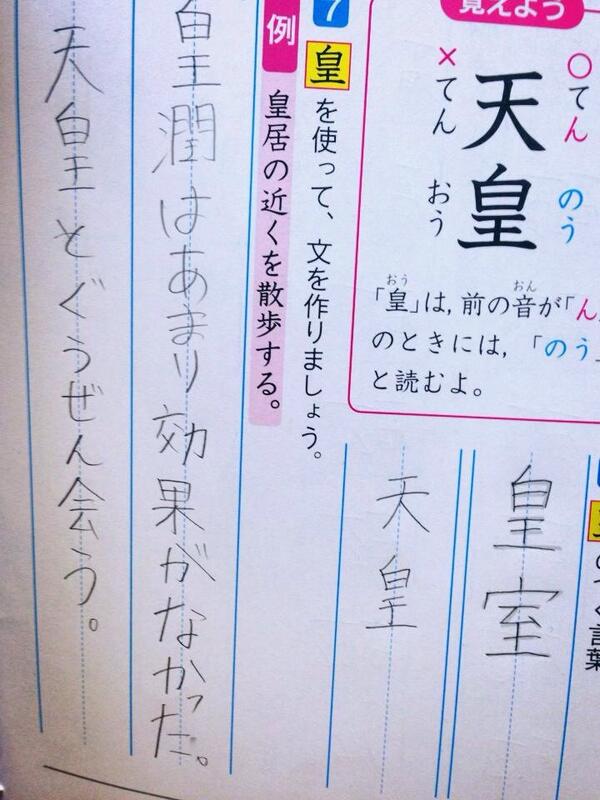 覚えよう
○てんのう
天皇
×てんおう
「皇」は,前の音が「ん
のときには,「のう」
と読むよ。
のつく言葉
皇室
天皇
7 皇を使って、文を作りましょう。
例 皇居の近くを散歩する。
皇潤はあまり効果がなかった。
天皇とぐうぜん会う。